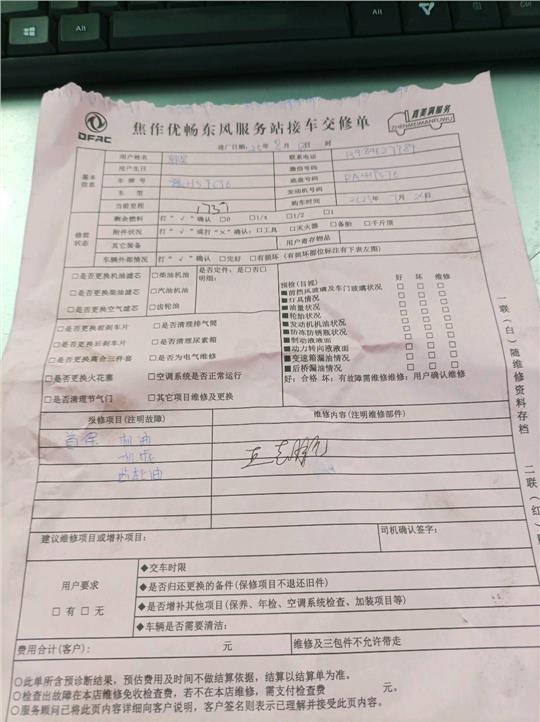 DFAC
焦作优畅东风服务站接车交修单
真美满服务
ZHENMEIMANFUWU
进厂日期: 年 8 月 日 时
基本信息
用户姓名 联系电话
用户生日 微信号码
车牌号 底盘号码
车型 发动机号码
当前里程 购车时间 年 月 日
修前状态
剩余燃料 打“√”确认 □0 □1/4 □1/2 □1
附件状况 打“√”或打“×”确认:□工具 □灭火器 □备胎 □千斤顶
其它装备 用户寄存物品
车辆外部情况 打“√”确认 □完好 □有损坏(有损坏部位标注有下表左图)
□是否更换机油滤芯 □柴油机油 是否定件:是□否□
明细:
□是否更换柴油滤芯 □汽油机油
□是否更换空气滤芯 □齿轮油
□是否更换前刹车片 □是否清理排气筒
□是否更换后刹车片 □是否清理尿素箱
□是否更换离合三件套 □是否为电气维修
□是否更换火花塞 □空调系统是否正常运行
□是否清理节气门 □其它项目维修及更换
预检(目视) 好 坏 维修
■前挡风玻璃及车门玻璃状况 □ □ □
■灯具情况 □ □ □
■油量状况 □ □ □
■轮胎状况 □ □ □
■发动机机油状况 □ □ □
■防冻防锈瓶状况 □ □ □
■制动液液面 □ □ □
■动力转向液液面 □ □ □
■变速箱漏油情况 □ □ □
■后桥漏油情况 □ □ □
好:合格 坏:有故障需维修维修:用户确认维修
报修项目(注明故障) 维修内容(注明维修部件)
首保 机油
机滤
齿轮油
建议维修项目或增补项目: 司机确认签字:
用户要求
□ 有 □ 无
◆交车时限
◆是否归还更换的备件(保修项目不退还旧件)
◆是否增补其他项目(保养、年检、空调系统检查、加装项目等)
◆车辆是否需要清洁:
费用合计(客户): 元 维修及三包件不允许带走
○此单所含预诊断结果,预估费用及时间不做结算依据,结算以结算单为准。
○检查出故障在本店维修免收检查费,若不在本店维修,需支付检查费 元。
○服务顾问已将此页内容详细向客户说明,客户签名则表示已理解并接受此页内容。
一联(白)随维修资料存档
二联(红)